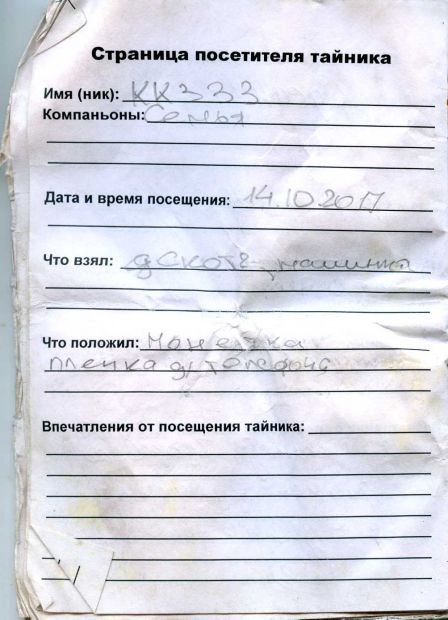 Страница посетителя тайника
Имя (ник): КК333
Компаньоны: Семья
Дата и время посещения: 14.10.2017
Что взял: машинка
Что положил: Монетка
пленка д/телефона
Впечатления от посещения тайника: